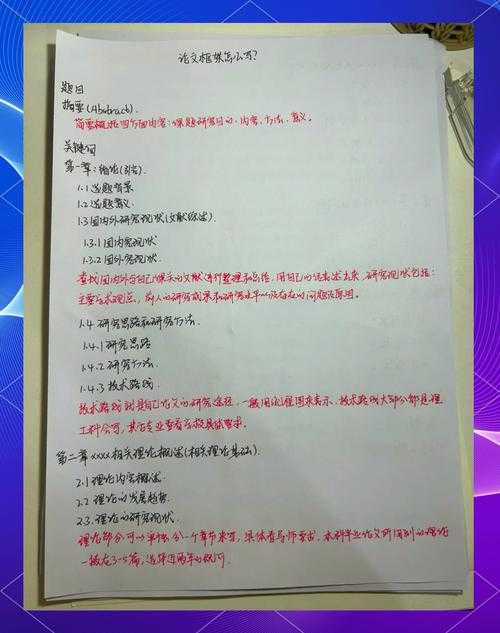 论文框架怎么写?
题目
摘要(Abstract).
简要概括四个方面内容:课题研究目的、内容、方法、意义。
关键词
第一章:绪论(引言)
1.1 选题背景
1.2 选题意义
1.3 国内外研究现状(文献综述)
1.3.1 国内研究现状
1.3.2 国外研究现状.
查找国内外与自己课题相关的文献进行整理和总结,用自己的语言述出来,研究现状包括:
主要学术观点、前人的研究成果和研究水平以及存在的问题及原因。
1.4. 研究思路和研究方法.
1.4.1 研究思路
1.4.2 研究方法.
1.4.3 技术路线.
技术路线就是自己论文的研究途径,一般用流程图来表示,技术路线大部分都是理
工科会写,其它专业要看学校具体要求。
第二章 xxxx相关理论概述(相关理论基础).
2.1 理论内容概述.
2.2 理论的发展趋势.
2.3. 理论的研究现状.
理论部分可以单独分一个章节来写,具体看导师要求,本科毕业论文所用到的理论
一般在3-5篇,选择近两年的就可.